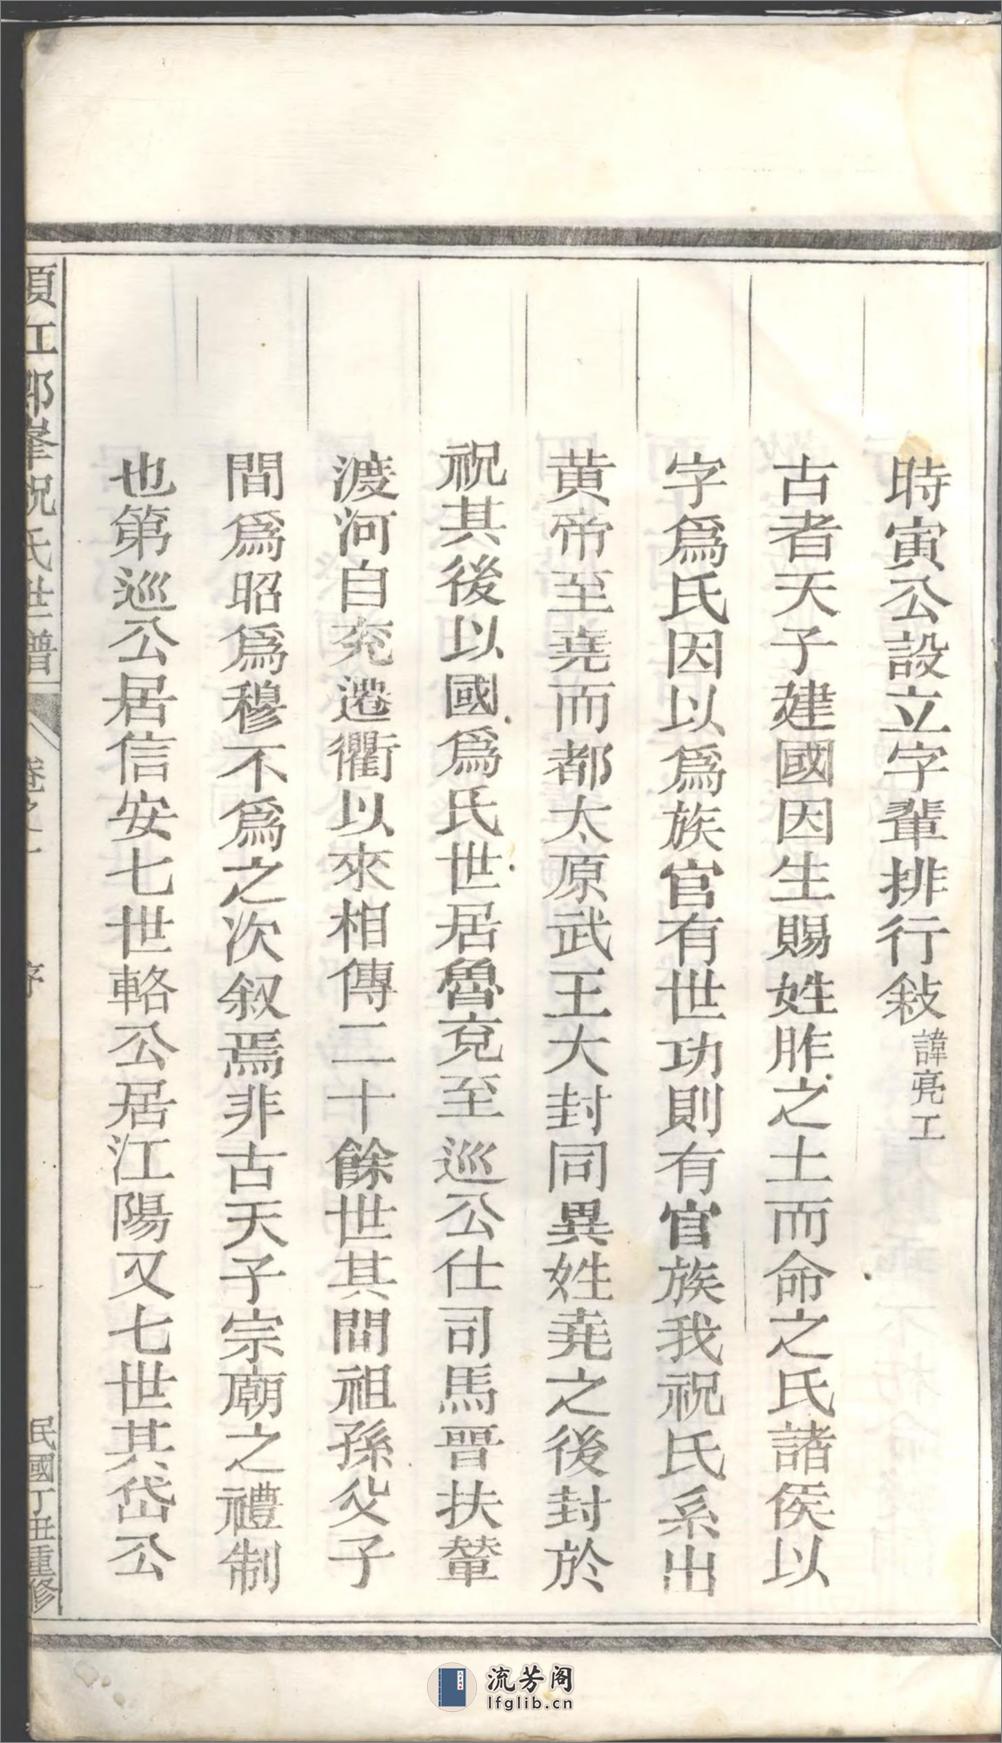 時寅公設立字輩排行敍 諱亮工
古者天子建國因生賜姓胙之土而命之氏諸侯以
字爲氏因以爲族官有世功則有官族我祝氏系出
黄帝至堯而都太原武王大封同異姓堯之後封於
祝其後以國爲氏世居魯兗至巡公仕司馬晋扶輦
渡河自兗遷衢以來相傳二十餘世其間祖孫父子
間爲昭爲穆不爲之次叙焉非古天子宗廟之禮制
也第巡公居信安七世輅公居江陽又七世其岱公
須江郎峯祝氏世譜 卷之一 序 一 民國丁丑重修
流芳阁
lfglib.cn